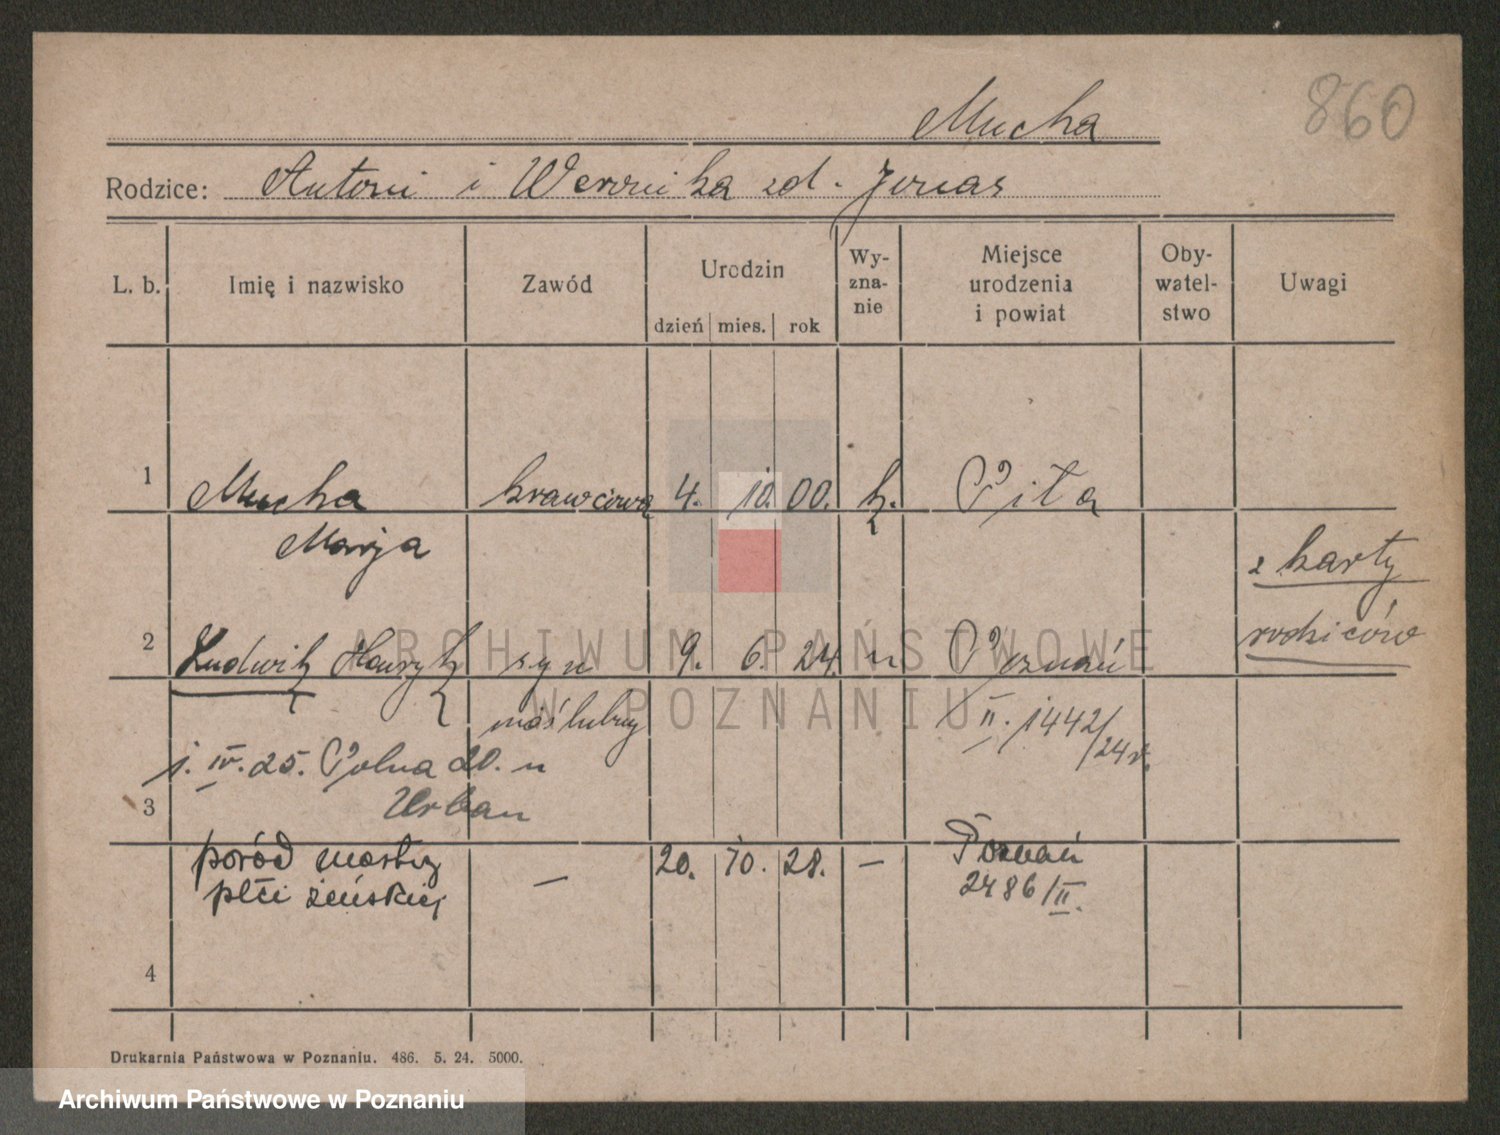 860
Mucha
Rodzice: Antoni i Weronika zd. Jonas
L. b. Imię i nazwisko Zawód Urodzin dzień mies. rok Wy-zna-nie Miejsce urodzenia i powiat Oby-watel-stwo Uwagi
1 Mucha krawcowa 4. 10. 00. k. Piła
Marja
z karty
rodziców
2 Ludwik Henryk syn 9. 6. 24. " Poznań
nieślubny II. 1442/24r.
1. IV. 25. Polna 20. u
Urban
3
poród martwy — 20. 10. 28. — Poznań
płci żeńskiej 2486/II.
4
Drukarnia Państwowa w Poznaniu. 486. 5. 24. 5000.
ARCHIWUM PAŃSTWOWE
W POZNANIU
Archiwum Państwowe w Poznaniu